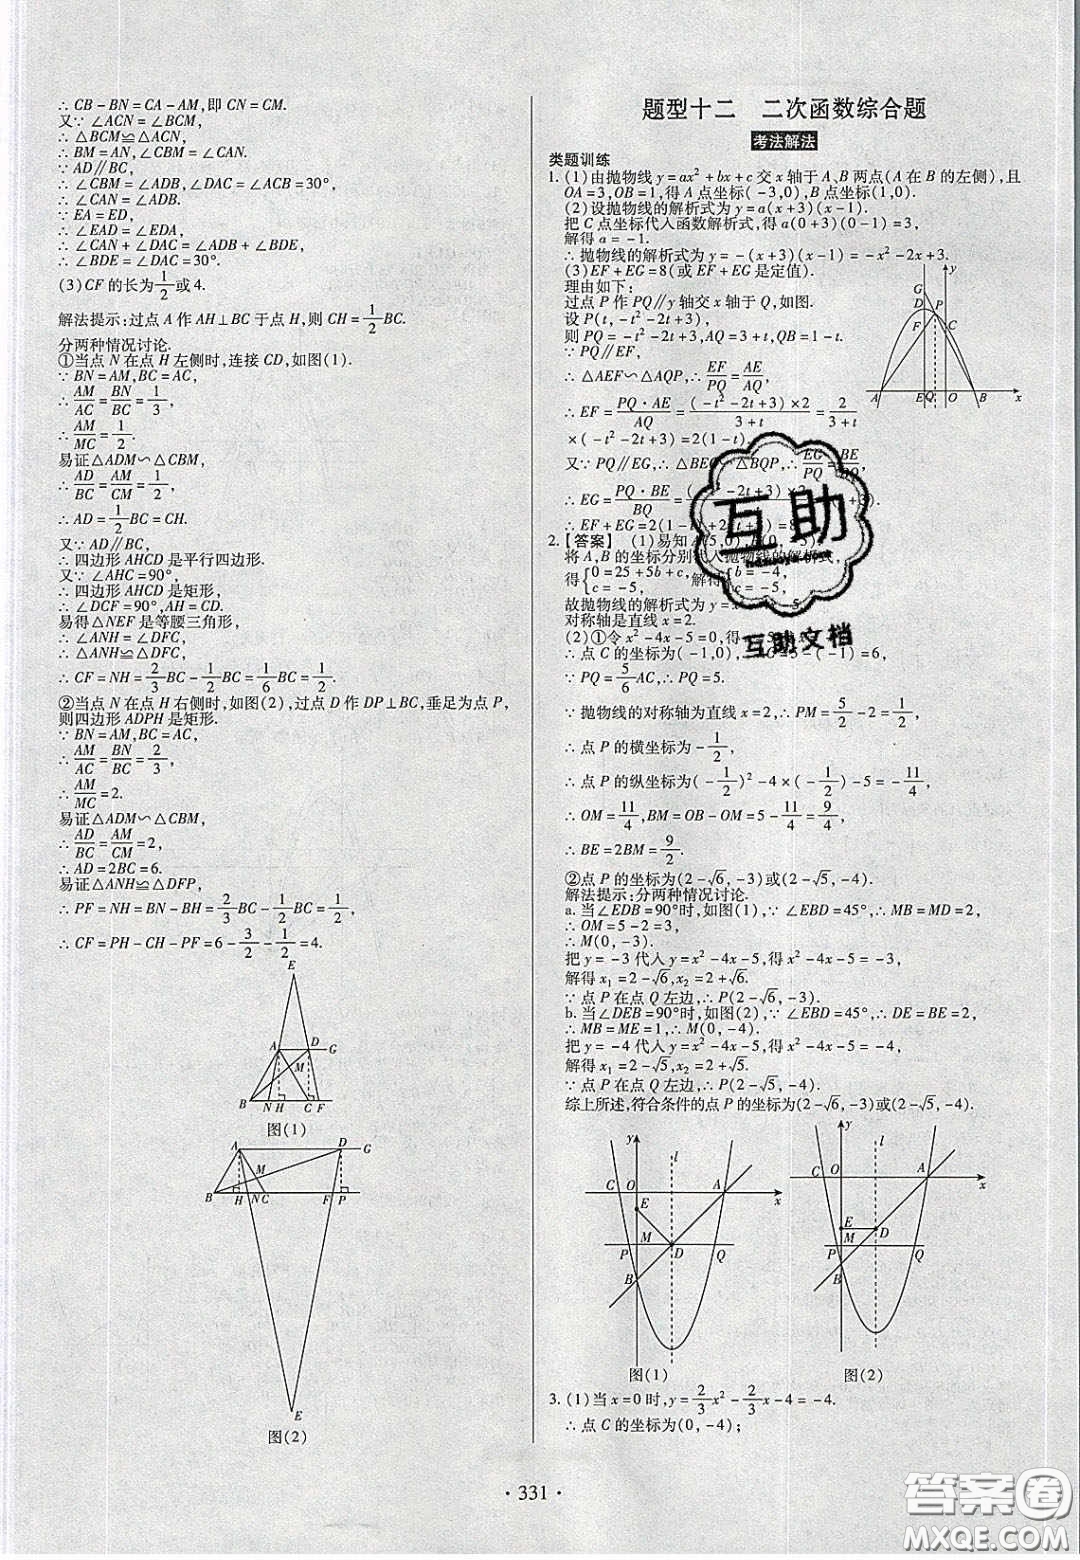 ∴ CB − BN = CA − AM,即 CN = CM.
又∵ ∠ACN = ∠BCM,
∴ △BCM≌△ACN.
∴ BM = AN,∠CBM = ∠CAN.
∵ AD∥BC,
∴ ∠CBM = ∠ADB,∠DAC = ∠ACB = 30°.
∴ ∠CAN = ∠ADB.
∵ EA = ED,
∴ ∠EAD = ∠EDA.
∴ ∠CAN + ∠DAC = ∠ADB + ∠BDE,
∴ ∠BDE = ∠DAC = 30°.
(3)CF 的长为1/2或4.
解法提示:过点 A 作 AH⊥BC 于点 H,则 CH = 1/2 BC.
分两种情况讨论.
①当点 N 在点 H 左侧时,连接 CD,如图(1).
∵ BN = AM,BC = AC,
∴ AM/AC = BN/BC = 1/3,
∴ AM/MC = 1/2.
易证△ADM∽△CBM,
∴ AD/BC = AM/CM = 1/2,
∴ AD = 1/2 BC = CH.
又∵ AD∥BC,
∴ 四边形 AHCD 是平行四边形.
又∵ ∠AHC = 90°,
∴ 四边形 AHCD 是矩形,
∴ ∠DCF = 90°,AH = CD.
易得△NEF 是等腰三角形,
∴ ∠ANH = ∠DFC,
∴ △ANH≌△DFC,
∴ CF = NH = 2/3 BC − 1/2 BC = 1/6 BC = 1/2.
②当点 N 在点 H 右侧时,如图(2),过点 D 作 DP⊥BC,垂足为点 P,
则四边形 ADPH 是矩形.
∵ BN = AM,BC = AC,
∴ AM/AC = BN/BC = 2/3,
∴ AM/MC = 2.
易证△ADM∽△CBM,
∴ AD/BC = AM/CM = 2,
∴ AD = 2BC = 6.
易证△ANH≌△DFP,
∴ PF = NH = BN − BH = 2/3 BC − 1/2 BC = 1/2,
∴ CF = PH − CH − PF = 6 − 3/2 − 1/2 = 4.
E
A D G
M
B N H C F
图(1)
A D G
M
B H N C F P
E
图(2)
题型十二 二次函数综合题
考法解法
类题训练
1. (1)由抛物线 y = ax² + bx + c 交 x 轴于 A,B 两点(A 在 B 的左侧),且
OA = 3,OB = 1,得 A 点坐标( −3,0),B 点坐标(1,0).
(2)设抛物线的解析式为 y = a(x + 3)(x − 1).
把 C 点坐标代入函数解析式,得 a(0 + 3)(0 − 1) = 3,
解得 a = −1.
∴ 抛物线的解析式为 y = −(x + 3)(x − 1) = −x² − 2x + 3.
(3)EF + EG = 8(或 EF + EG 是定值).
理由如下:
过点 P 作 PQ∥y 轴交 x 轴于 Q,如图.
设 P(t, −t² − 2t + 3),
则 PQ = −t² − 2t + 3,AQ = 3 + t,QB = 1 − t.
∵ PQ∥EF,
∴ △AEF∽△AQP,∴ EF/PQ = AE/AQ,
∴ EF = PQ·AE/AQ = ( −t² − 2t + 3) × 2/3 + t = 2/3 + t
× ( −t² − 2t + 3) = 2(1 − t).
y
G
D P
F C
A E Q O B x
又∵ PQ∥EG,∴ △BEG∽△BQP,∴ EG/PQ = BE/BQ,
∴ EG = PQ·BE/BQ =
∴ EF + EG = 2(1 − t) + 2(t + 3) = 8
2. 【答案】 (1)易知 A(5,0),B(0, −5).
将 A,B 的坐标分别代入抛物线的解析式,
得{0 = 25 + 5b + c, c = −5, 解得{b = −4, c = −5,
故抛物线的解析式为 y = x
对称轴是直线 x = 2.
(2)①令 x² − 4x − 5 = 0,得
∴ 点 C 的坐标为( −1,0), AC = 5 − ( −1) = 6,
∵ PQ = 5/6 AC,∴ PQ = 5.
∵ 抛物线的对称轴为直线 x = 2,∴ PM = 5/2 − 2 = 1/2,
∴ 点 P 的横坐标为 −1/2,
∴ 点 P 的纵坐标为( −1/2)² − 4 × ( −1/2) − 5 = −11/4,
∴ OM = 11/4,BM = OB − OM = 5 − 11/4 = 9/4,
∴ BE = 2BM = 9/2.
②点 P 的坐标为(2 − √6, −3)或(2 − √5, −4).
解法提示:分两种情况讨论.
a. 当∠EDB = 90°时,如图(1),∵ ∠EBD = 45°,∴ MB = MD = 2,
∴ OM = 5 − 2 = 3,
∴ M(0, −3).
把 y = −3 代入 y = x² − 4x − 5,得 x² − 4x − 5 = −3,
解得 x₁ = 2 − √6,x₂ = 2 + √6.
∵ 点 P 在点 Q 左边,∴ P(2 − √6, −3).
b. 当∠DEB = 90°时,如图(2),∵ ∠EBD = 45°,∴ DE = BE = 2,
∴ MB = ME = 1,∴ M(0, −4).
把 y = −4 代入 y = x² − 4x − 5,得 x² − 4x − 5 = −4,
解得 x₁ = 2 − √5,x₂ = 2 + √5.
∵ 点 P 在点 Q 左边,∴ P(2 − √5, −4).
综上所述,符合条件的点 P 的坐标为(2 − √6, −3)或(2 − √5, −4).
y l
C O A x
E
M
P D Q
B
图(1)
y l
C O A x
E D
P M Q
B
图(2)
3. (1)当 x = 0 时,y = 2/3 x² − 2/3 x − 4 = −4.
∴ 点 C 的坐标为(0, −4);
· 331 ·
互助
互助文档
答案圈
MXQE.COM